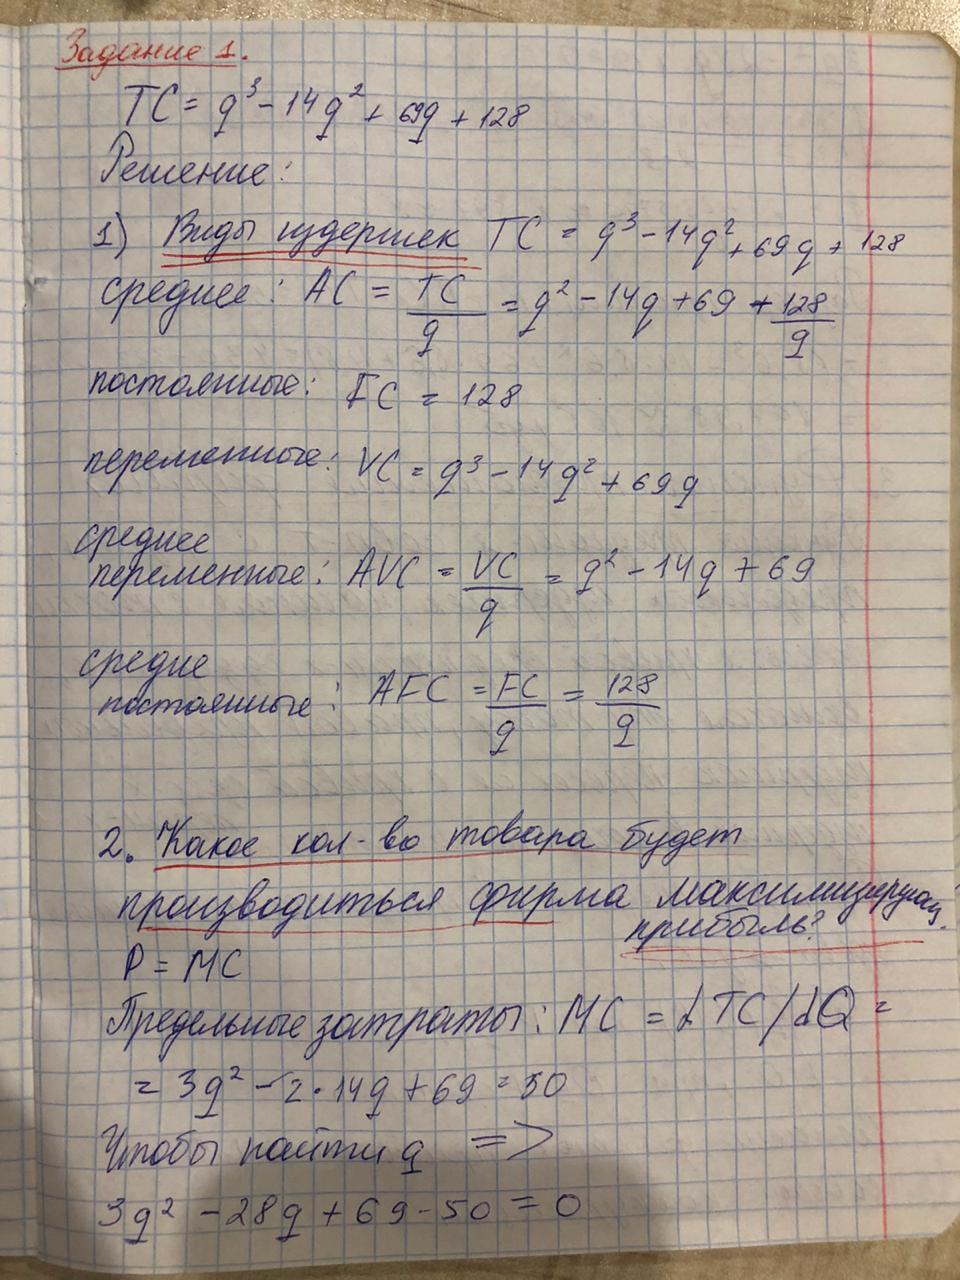 Задание 1.
TC = q³ - 14q² + 69q + 128
Решение:
1) Виды издержек TC = q³ - 14q² + 69q + 128
среднее: AC = TC/q = q² - 14q + 69 + 128/q
постоянные: FC = 128
переменные: VC = q³ - 14q² + 69q
среднее
переменные: AVC = VC/q = q² - 14q + 69
средние
постоянные: AFC = FC/q = 128/q
2. Какое кол-во товара будет
производиться фирма максимизирующ.
прибыль?
P = MC
Предельные затраты: MC = dTC/dQ =
= 3q² - 2·14q + 69 = 50
Чтобы найти q =>
3q² - 28q + 69 - 50 = 0